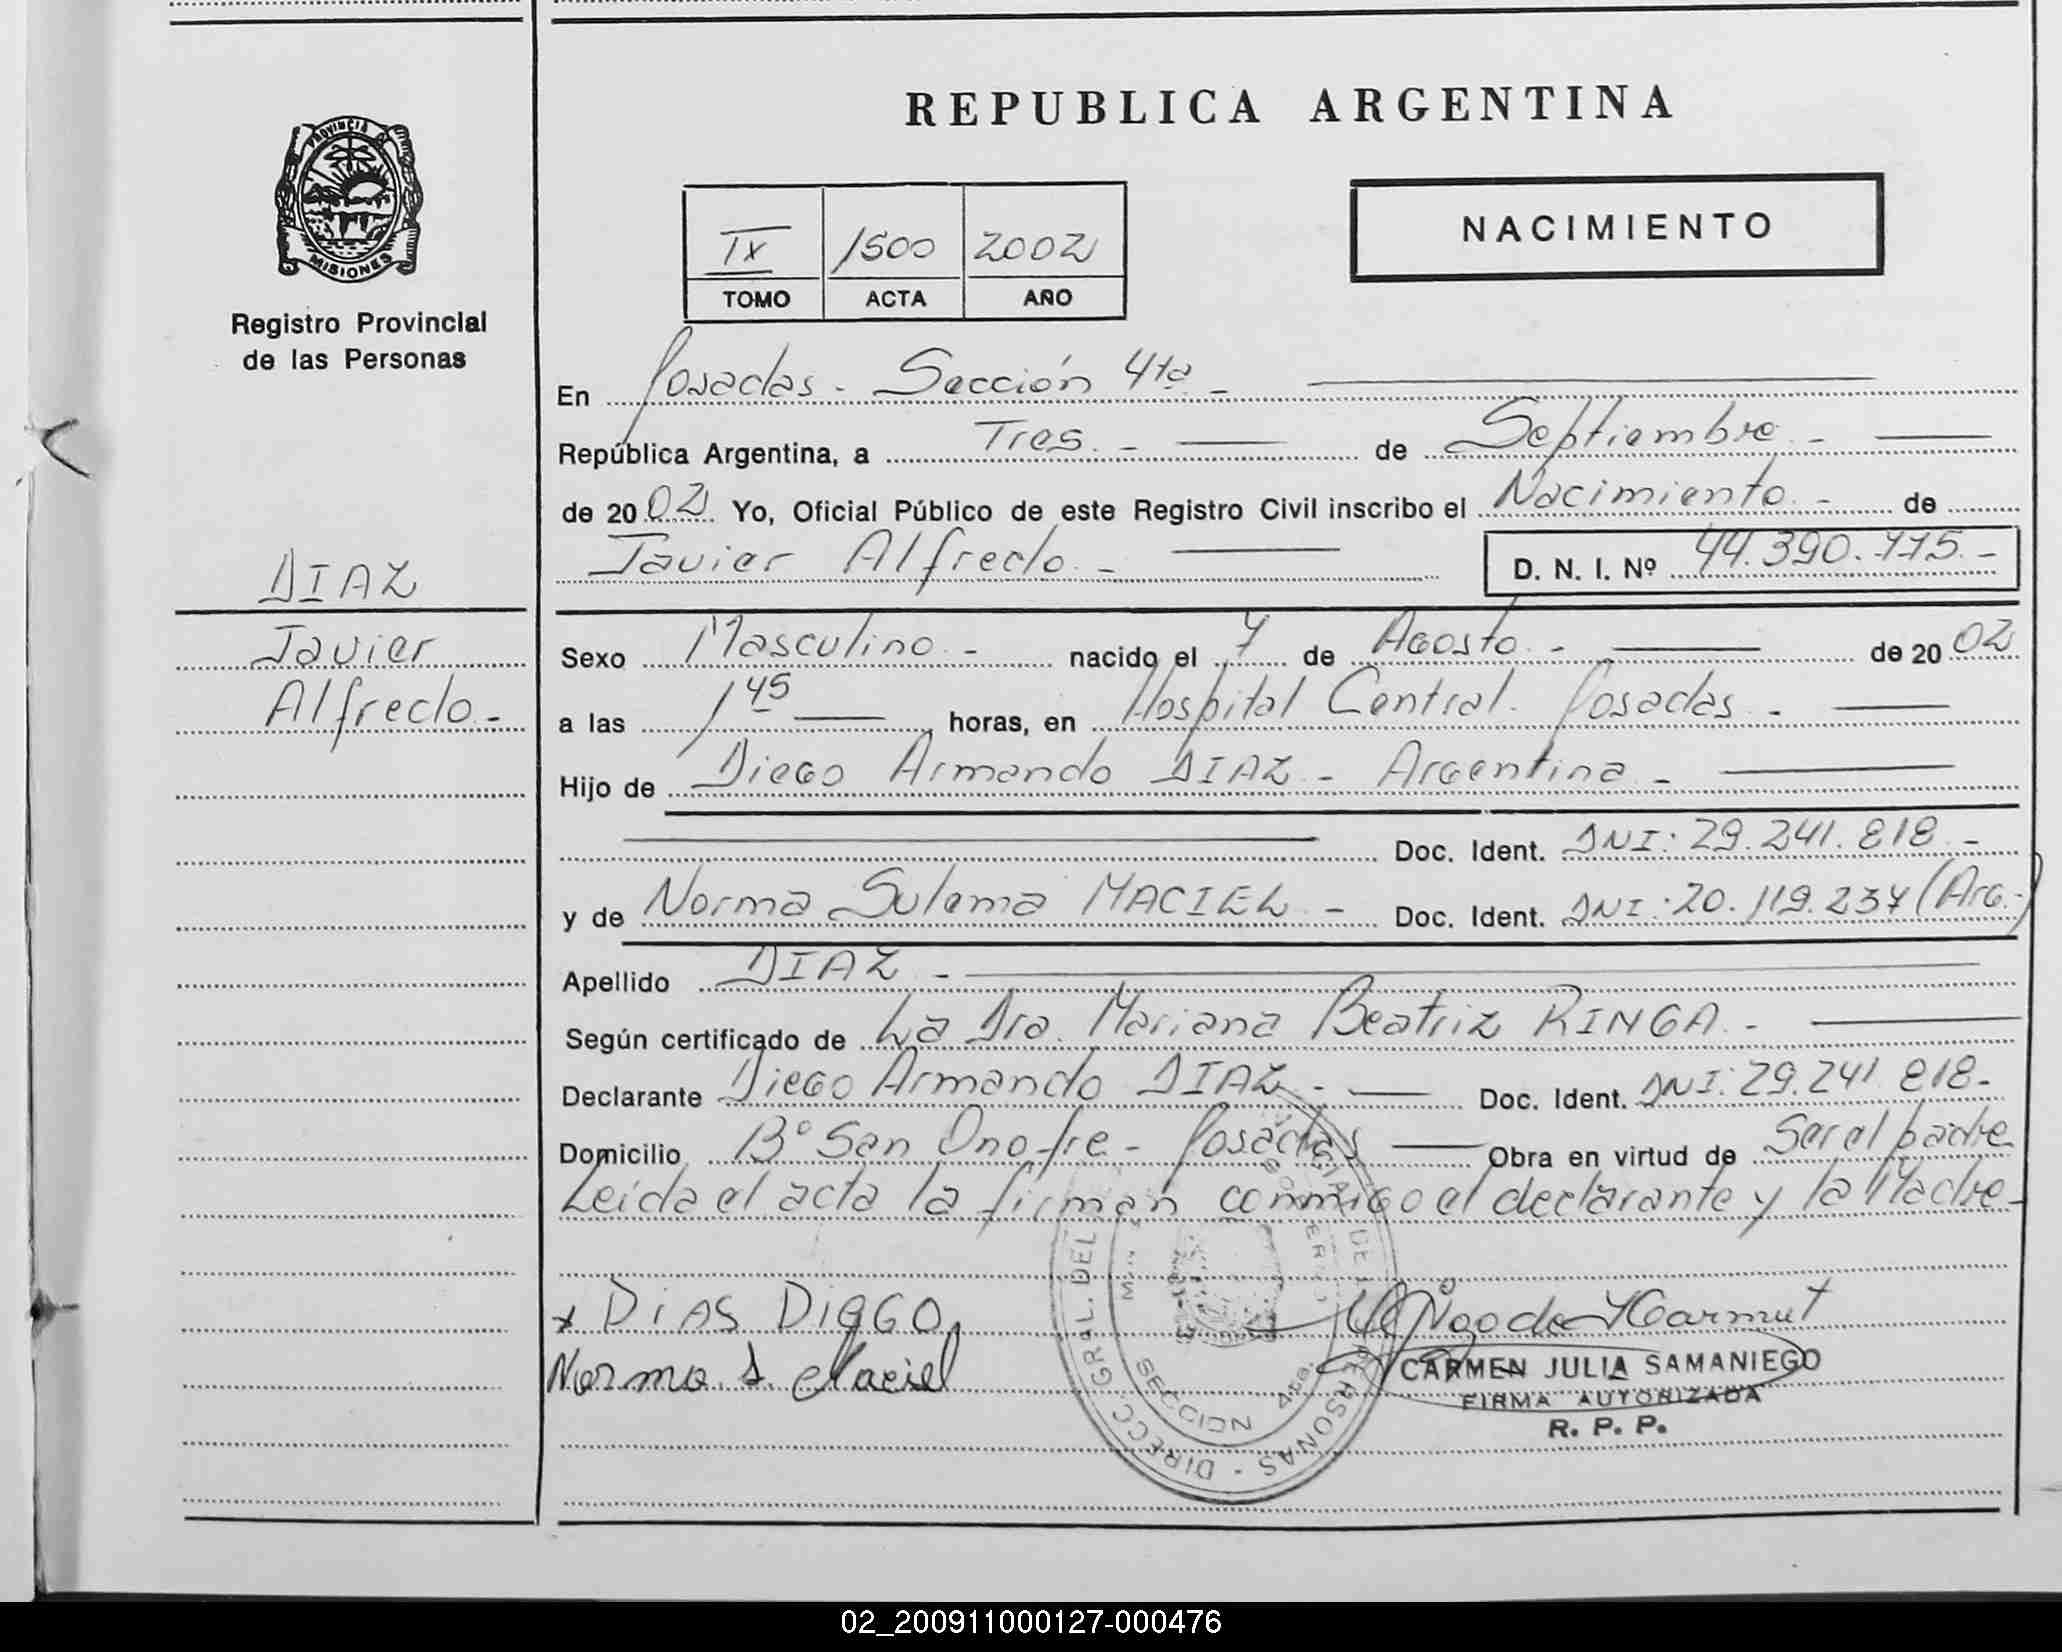 REPUBLICA ARGENTINA
PROVINCIA DE
MISIONES
Registro Provincial
de las Personas
NACIMIENTO
IX 1500 2002
TOMO ACTA AÑO
En Posadas - Sección 4ta -
República Argentina, a Tres. - de Septiembre. -
de 2002 Yo, Oficial Público de este Registro Civil inscribo el Nacimiento. - de
Javier Alfredo. - D. N. I. Nº 44.390.775. -
DIAZ
Javier
Alfredo. -
Sexo Masculino. - nacido el 7 de Agosto. - de 2002
a las 1 45 horas, en Hospital Central. Posadas. -
Hijo de Diego Armando DIAZ - Argentina -
Doc. Ident. DNI: 29.241.818. -
y de Norma Sulema MACIEL - Doc. Ident. DNI: 20.119.237 (Arg.-)
Apellido DIAZ -
Según certificado de La Dra. Mariana Beatriz RINGA. -
Declarante Diego Armando DIAZ - Doc. Ident. DNI: 29.241.818 -
Domicilio Bº San Onofre - Posadas Obra en virtud de Ser el padre
Leida el acta la firman conmigo el declarante y la Madre -
x DiAS DIEGO
Norma. S. Maciel
CARMEN JULIA SAMANIEGO
FIRMA AUTORIZADA
R. P. P.
DIRECC. GRAL. DEL DE PERSONAS -
SECCION 4ta.
02_200911000127-000476